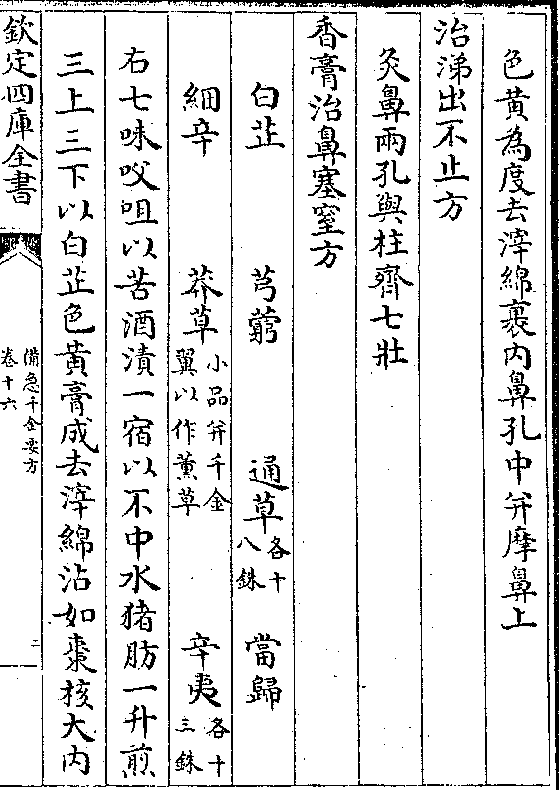 色黃為度去滓綿裹内鼻孔中并摩鼻上
治涕出不止方
灸鼻兩孔與柱齊七壯
香膏治鼻塞窒方
白芷 芎藭 通草各十八銖 當歸
細辛 莽草小品并千金翼以作薰草 辛夷各十三銖
右七味㕮咀以苦酒漬一宿以不中水猪肪一升煎
三上三下以白芷色黃膏成去滓綿沾如棗核大内
欽定四庫全書
備急千金要方
卷十六
二